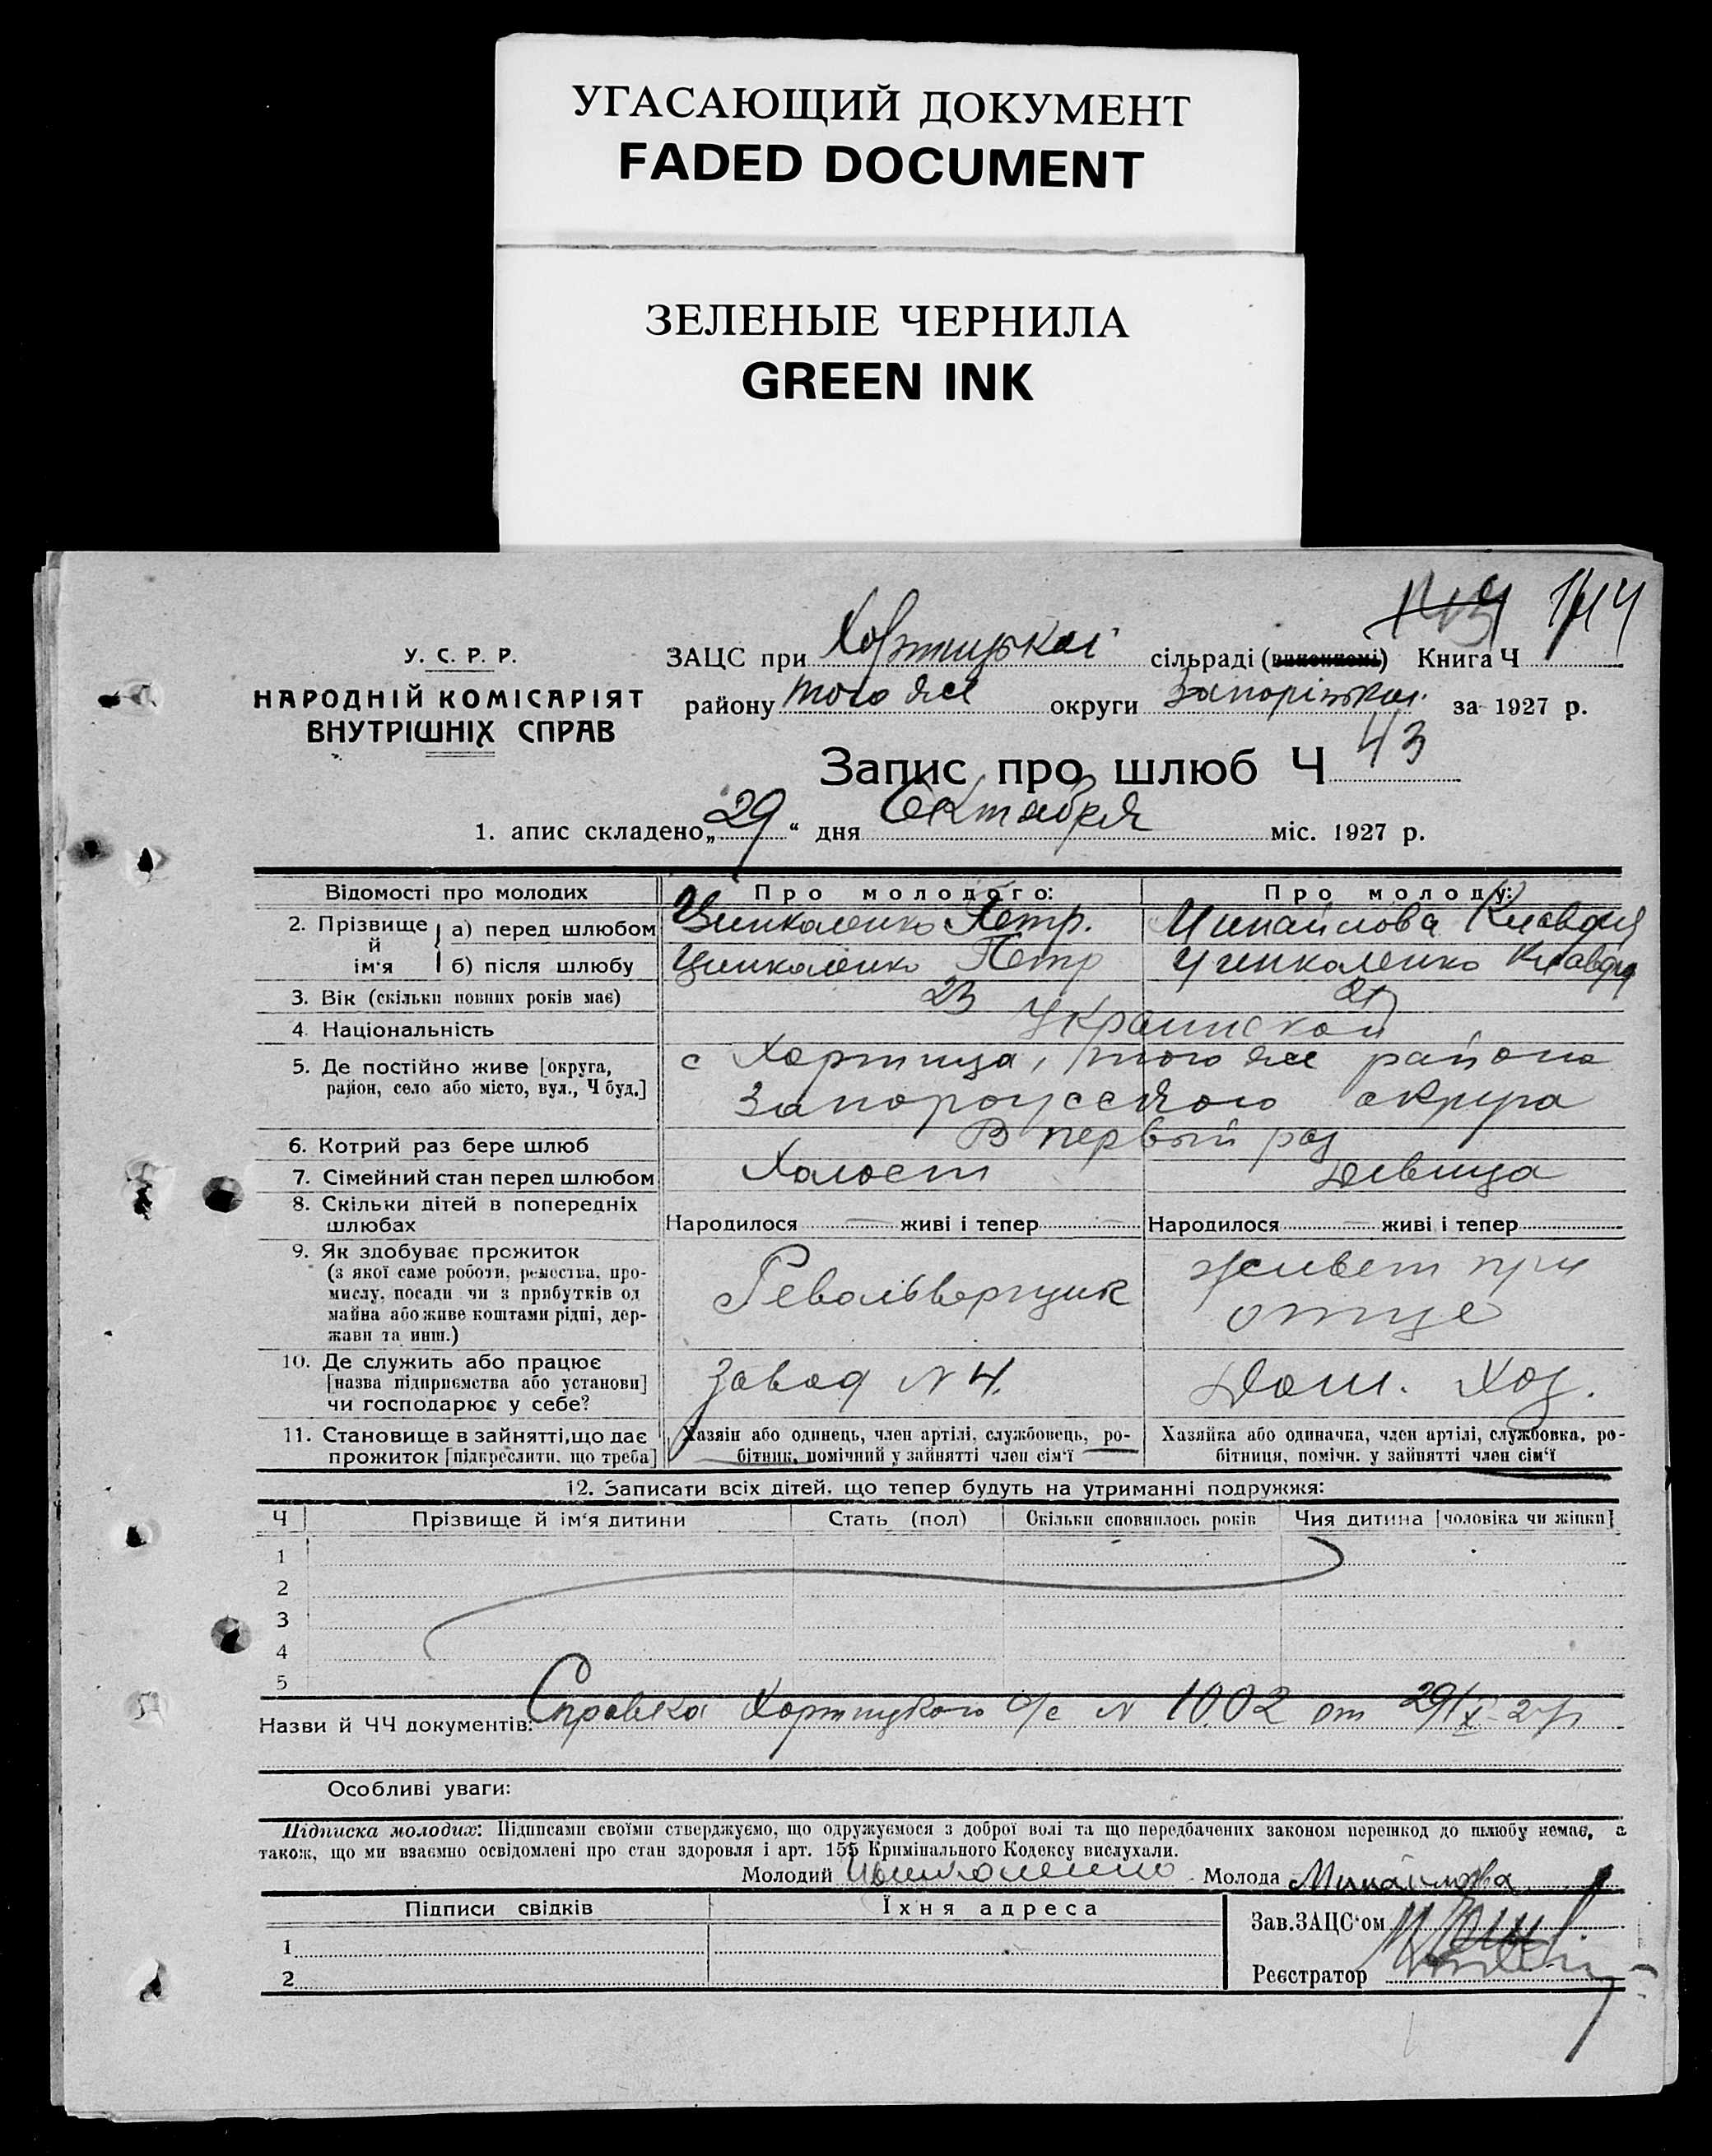 УГАСАЮЩИЙ ДОКУМЕНТ
FADED DOCUMENT
ЗЕЛЕНЫЕ ЧЕРНИЛА
GREEN INK
144
У. С. Р. Р.
НАРОДНІЙ КОМІСАРІЯТ
ВНУТРІШНІХ СПРАВ
ЗАЦС при Хортицькой сільраді (виконкомі) Книга Ч
району того же округи Запоріжской за 1927 р.
Запис про шлюб Ч 43
1. апис складено „29“ дня Октября міс. 1927 р.
Відомості про молодих Про молодого: Про молоду:
2. Прізвище й ім'я а) перед шлюбом Цинкаленко Петр. Михайлова Клавдия
б) після шлюбу Цинкаленко Петр Цинкаленко Клавдия
3. Вік (скільки повних років має) 23 21
4. Національність Украинской
5. Де постійно живе [округа, район, село або місто, вул., Ч буд.]
с Хортица, того же района
Запорожского округа
6. Котрий раз бере шлюб В первый раз
7. Сімейний стан перед шлюбом Холост Девица
8. Скільки дітей в попередніх шлюбах Народилося — живі і тепер — Народилося — живі і тепер
9. Як здобуває прожиток
(з якої саме роботи, ремества, про-
мислу, посади чи з прибутків од
майна або живе коштами рідні, дер-
жави та инш.)
Револьверщик живет при
отце
10. Де служить або працює
[назва підприємства або установи]
чи господарює у себе?
Завод N 4. Дом. Хоз.
11. Становище в зайнятті, що дає
прожиток [підкреслити, що треба]
Хазяін або одинець, член артілі, службовець, ро-
бітник, помічний у зайнятті член сім'ї
Хазяйка або одиначка, член артілі, службовка, ро-
бітниця, помічн. у зайнятті член сім'ї
12. Записати всіх дітей, що тепер будуть на утриманні подружжя:
Ч Прізвище й ім'я дитини Стать (пол) Скільки сповнилось років Чия дитина [чоловіка чи жінки]
1
2
3
4
5
Назви й ЧЧ документів: Справка Хортицкого с/с N 1002 от 29/X-27р
Особливі уваги:
Підписка молодих: Підписами своїми стверджуємо, що одружуємося з доброї волі та що передбачених законом перешкод до шлюбу немає, а
також, що ми взаємно освідомлені про стан здоровля і арт. 155 Кримінального Кодексу вислухали.
Молодий Цинкаленко Молода Михайлова
Підписи свідків Їхня адреса
Зав.ЗАЦС'ом
1
2
Реєстратор